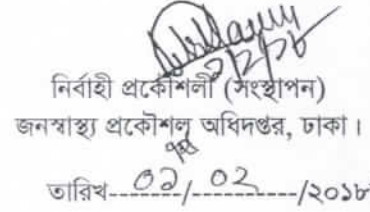 ২/২/১৮
নির্বাহী প্রকৌশলী (সংস্থাপন)
জনস্বাস্থ্য প্রকৌশল অধিদপ্তর, ঢাকা।
তারিখ-----০১-/--০২------/২০১৮